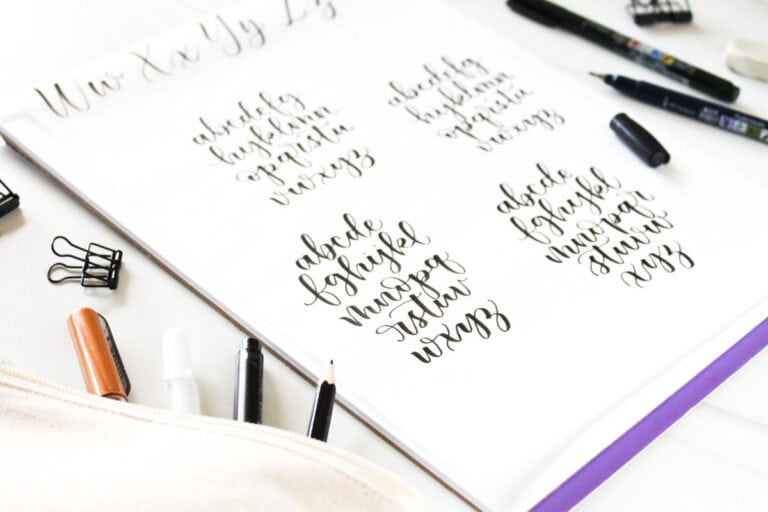 Ww Xx Yy Zz
abcdefg
hijklmn
opqrstu
vwxyz
abcdefg
hijklmn
opqrstu
vwxyz
abcde
fghijkl
mnopq
rstuv
wxyz
abcde
fghijkl
mnopqr
stuvw
xyz